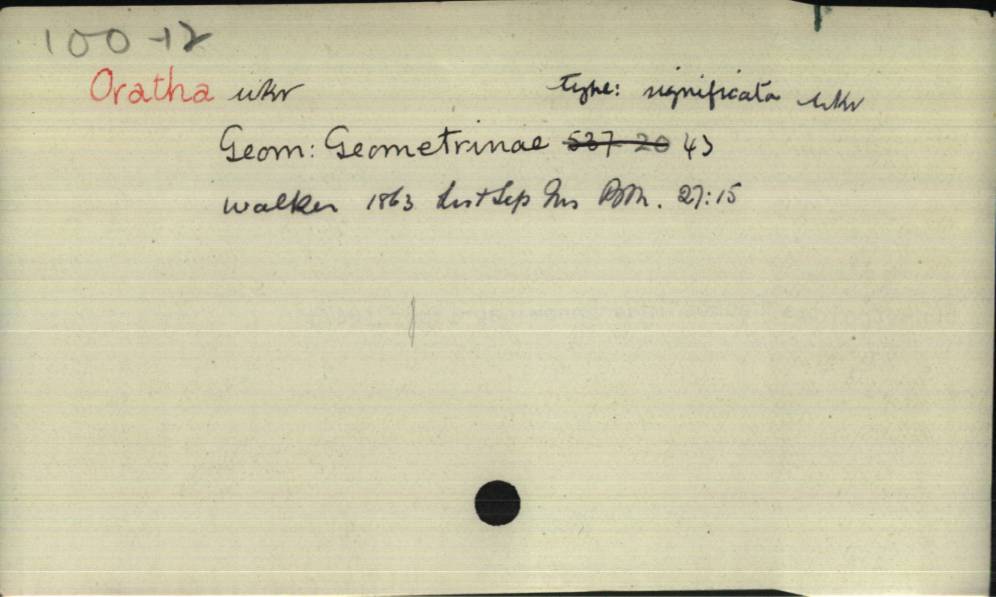 100-12
Oratha wkr type: significata wkr
Geom: Geometrinae 537 20 43
Walker 1863 List Lep Ins BM. 27:15